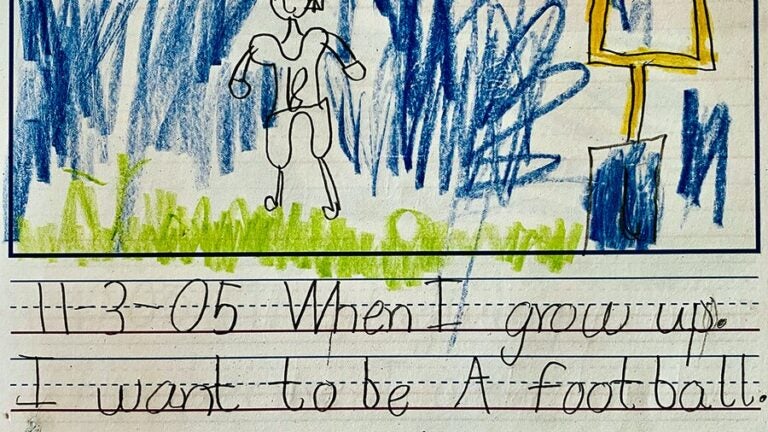 11-3-05 When I grow up.
I want to be A football.